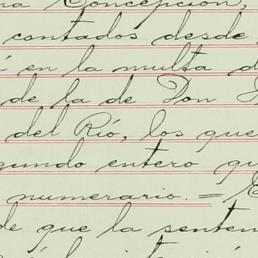 Concepción,
contados desde
en la multa
de la de Don
del Río, los que
entero
numerario. =
de que la